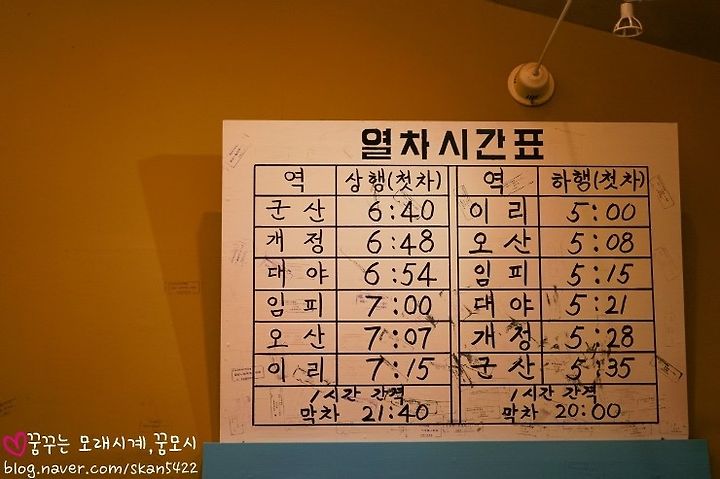 열차시간표
역 상행(첫차) 역 하행(첫차)
군산 6:40 이리 5:00
개정 6:48 오산 5:08
대야 6:54 임피 5:15
임피 7:00 대야 5:21
오산 7:07 개정 5:28
이리 7:15 군산 5:35
1시간 간격 1시간 간격
막차 21:40 막차 20:00
꿈꾸는 모래시계,꿈모시
blog.naver.com/skan5422